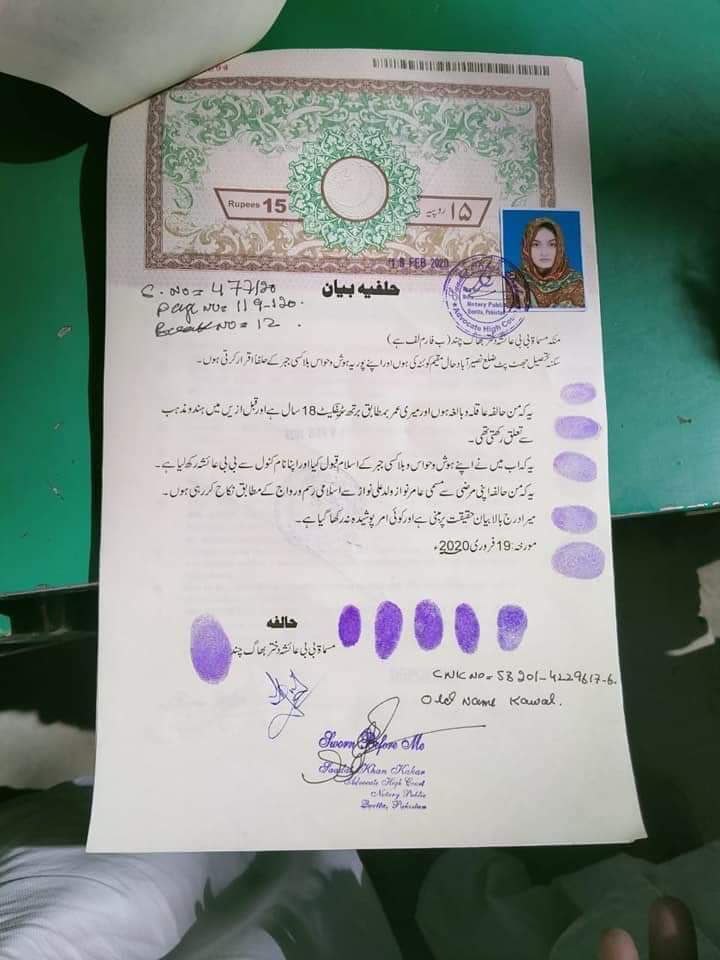 Rupees 15
۱۵ روپیہ
19 FEB 2020
S. NO = 477/20
Page NO = 119-120.
Book NO = 12.
حلفیہ بیان
Notary Public
Quetta, Pakistan
Advocate High Court
منکہ مسماۃ بی بی عائشہ دختر بھاگ چند (ب فارم لف ہے)
سکنہ تحصیل جھٹ پٹ ضلع نصیر آباد حال مقیم کوئٹہ کی ہوں اور اپنے پورے ہوش و حواس بلا کسی جبر کے حلفا اقرار کرتی ہوں۔
یہ کہ من حالفہ عاقلہ و بالغہ ہوں اور میری عمر بمطابق برتھ سرٹیفکیٹ 18 سال ہے اور قبل ازیں میں ہندو مذہب
سے تعلق رکھتی تھی۔
یہ کہ اب میں نے اپنے ہوش و حواس و بلا کسی جبر کے اسلام قبول کیا اور اپنا نام کنول سے بی بی عائشہ رکھ لیا ہے۔
یہ کہ من حالفہ اپنی مرضی سے مسمی عامر نواز ولد علی نواز سے اسلامی رسم و رواج کے مطابق نکاح کر رہی ہوں۔
میرا درج بالا بیان حقیقت پر مبنی ہے اور کوئی امر پوشیدہ نہ رکھا گیا ہے۔
مورخہ: 19 فروری 2020ء
حالفہ
مسماۃ بی بی عائشہ دختر بھاگ چند
CNIC NO = 53201-4229617-6.
Old Name Kawal.
Sworn Before Me
Khan Kakar
Advocate High Court
Notary Public
Quetta, Pakistan